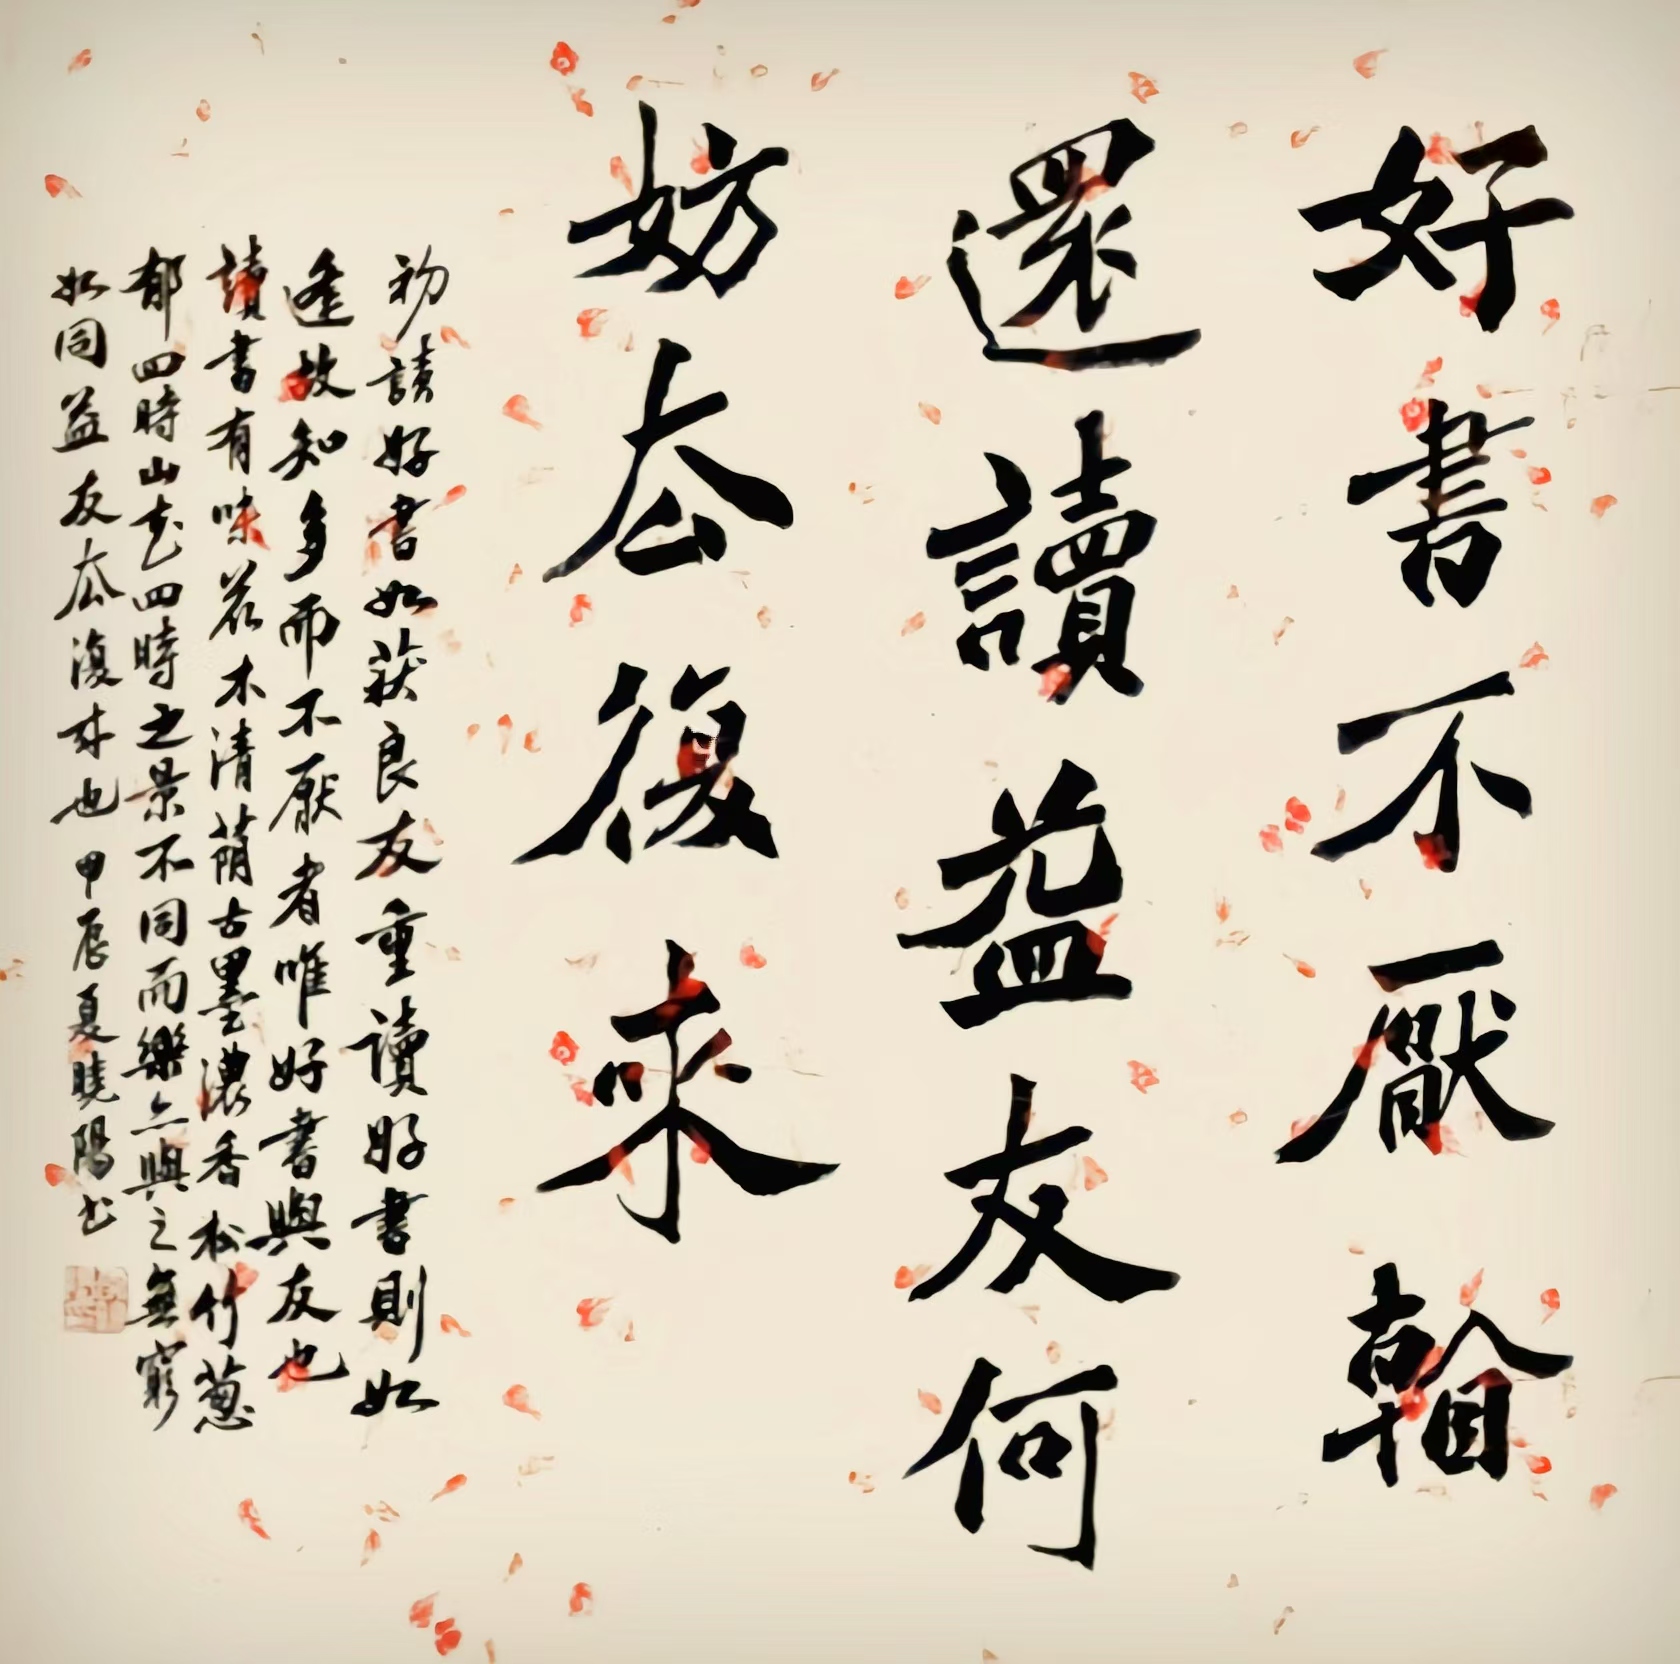 好書不厭看
還讀益友何
妨去復來
初讀好書如获良友重讀好書則如
逢故知多而不厭者唯好書與友也
讀書有味花木清蔭古墨濃香松竹蔥
郁四時山花四時之景不同而樂亦與之無窮
如同益友去復來也 甲辰夏曉陽书